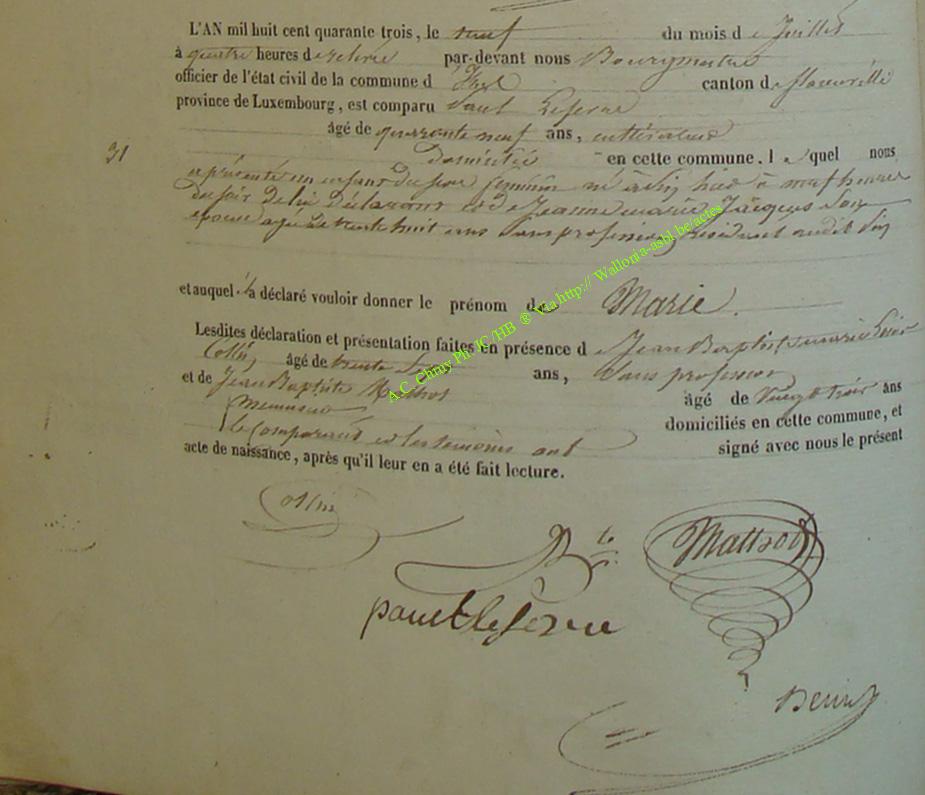 L'AN mil huit cent quarante trois, le neuf du mois de Juillet
à quatre heures de relevé par-devant nous Bourgmestre
officier de l'état civil de la commune d' canton de florenville
province de Luxembourg, est comparu Paul Lefevre
âgé de quarante neuf ans, cultivateur
31 domicilié en cette commune, lequel nous
a présenté un enfant du sexe féminin né à hier à neuf heures
du soir de lui déclarant et de Jeanne marie Jacques son
épouse agée de trente huit ans sans profession résident audit
et auquel il a déclaré vouloir donner le prénom de Marie.
Lesdites déclaration et présentation faites en présence de Jean Baptiste marie
Collin âgé de trente ans, sans profession
et de Jean Baptiste âgé de vingt trois ans
menuisier domiciliés en cette commune, et
le comparant et les témoins ont signé avec nous le présent
acte de naissance, après qu'il leur en a été fait lecture.
Collin
Mattrot
paul lefevre
A.C. Chiny Ph. JC /HB ® Via http:// Wallonia-asbl.be/actes